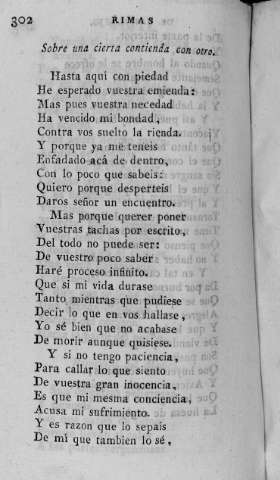 302 RIMAS
Sobre una cierta contienda con otro.
Hasta aqui con piedad
He esperado vuestra emienda:
Mas pues vuestra necedad
Ha vencido mi bondad,
Contra vos suelto la rienda.
Y porque ya me teneis
Enfadado acá de dentro,
Con lo poco que sabeis:
Quiero porque desperteis
Daros señor un encuentro.
Mas porque querer poner
Vuestras tachas por escrito,
Del todo no puede ser:
De vuestro poco saber
Haré proceso infinito.
Que si mi vida durase
Tanto mientras que pudiese
Decir lo que en vos hallase,
Yo sé bien que no acabase
De morir aunque quisiese.
Y si no tengo paciencia,
Para callar lo que siento
De vuestra gran inocencia,
Es que mi mesma conciencia,
Acusa mi sufrimiento.
Y es razon que lo sepais
De mí que tambien lo sé,